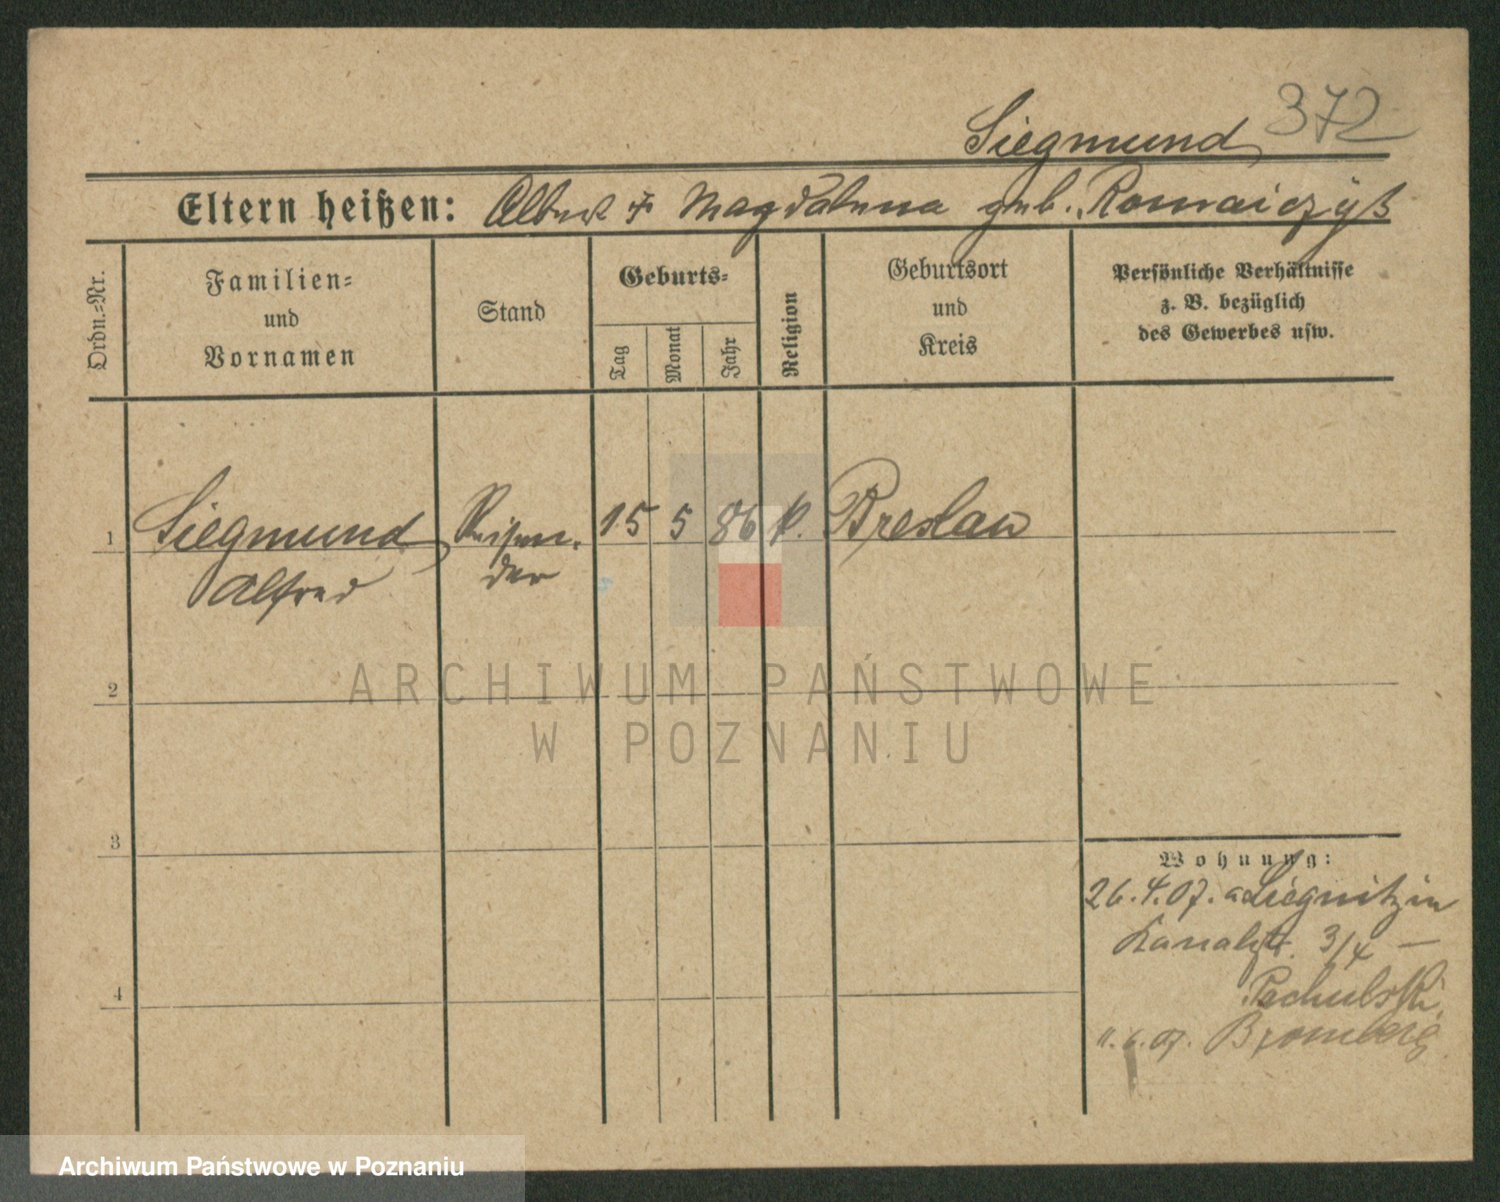 Siegmund 372
Eltern heißen: Albert u. Magdalena geb.
Ordn.-Nr.
Familien-
und
Vornamen
Stand
Geburts-
Tag
Monat
Jahr
Religion
Geburtsort
und
Kreis
Persönliche Verhältnisse
z. B. bezüglich
des Gewerbes usw.
1 Siegmund Reisen- 15 5 86 k. Breslau
Alfred der
2
3
4
Wohnung:
26.4.07. a Liegnitz in
Kanalstr. 3/4 —
Pachulski
11.6.07. Bromberg
ARCHIWUM PAŃSTWOWE
W POZNANIU
Archiwum Państwowe w Poznaniu